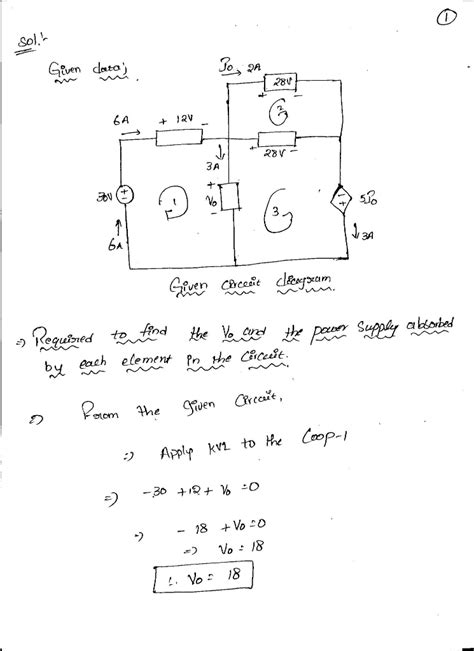 1
Sol:-
Given data;
Io 2A
28V
+ -
2
6A + 12V -
+ 28V -
3A
30V + - 1 + Vo - 3 - + 5Io
6A
3A
Given circuit diagram
=> Required to find the Vo and the power supply absorbed
by each element in the circuit.
=> From the given circuit,
=> Apply KVL to the Loop-1
=> -30 +12 + Vo =0
=> - 18 + Vo =0
=> Vo = 18
∴ Vo = 18